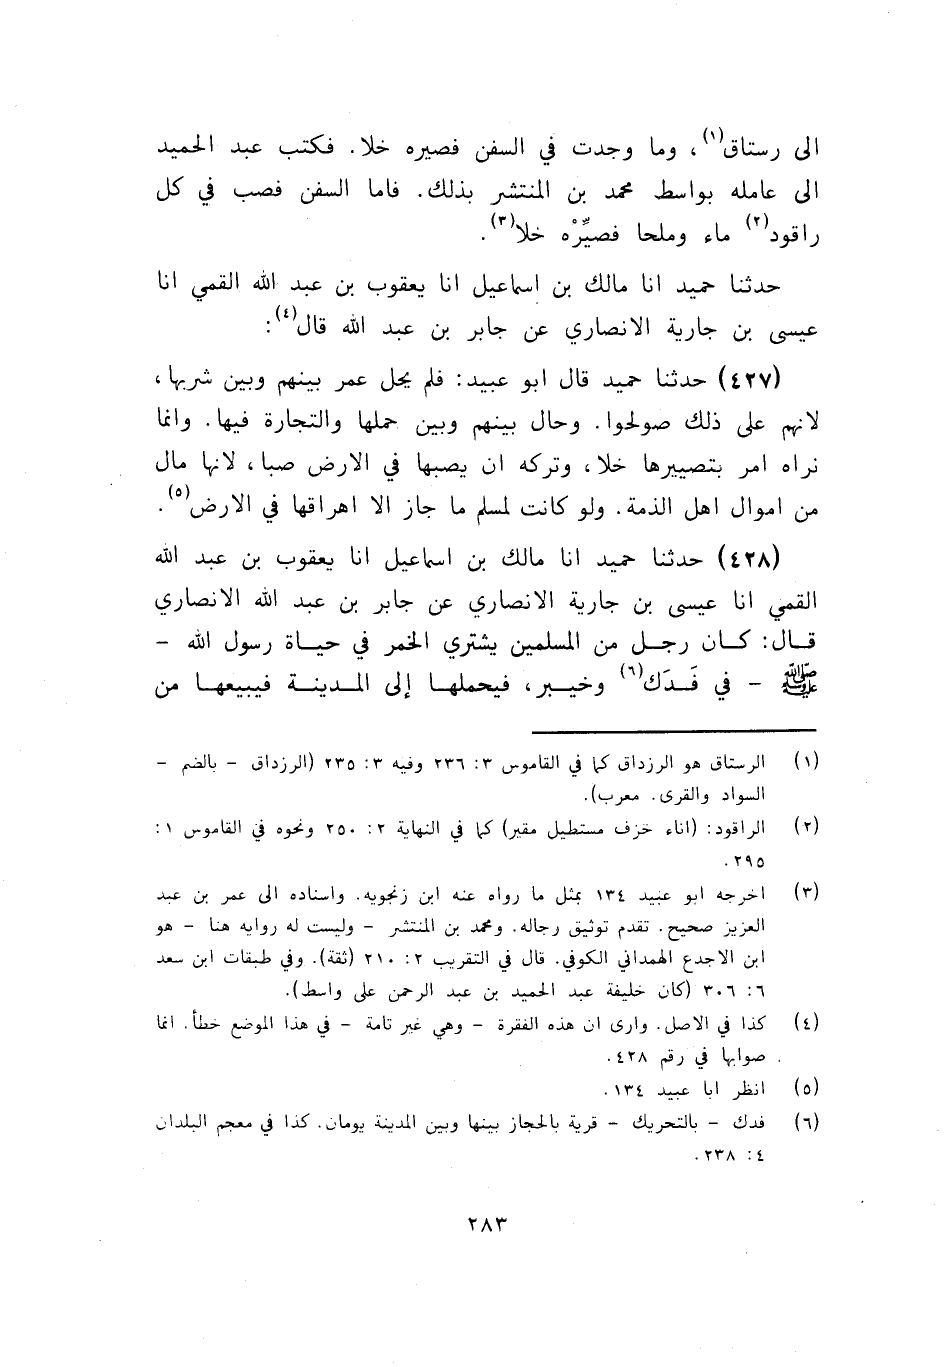 الى رستاق(١)، وما وجدت في السفن فصيره خلا. فكتب عبد الحميد
الى عامله بواسط محمد بن المنتشر بذلك. فاما السفن فصب في كل
راقود(٢) ماء وملحا فصيِّرْه خلا(٣).
حدثنا حميد انا مالك بن اسماعيل انا يعقوب بن عبد الله القمي انا
عيسى بن جارية الانصاري عن جابر بن عبد الله قال(٤):
(٤٢٧) حدثنا حميد قال ابو عبيد: فلم يحل عمر بينهم وبين شربها،
لانهم على ذلك صولحوا. وحال بينهم وبين حملها والتجارة فيها. وانما
نراه امر بتصييرها خلا، وتركه ان يصبها في الارض صبا، لانها مال
من اموال اهل الذمة. ولو كانت لمسلم ما جاز الا اهراقها في الارض(٥).
(٤٢٨) حدثنا حميد انا مالك بن اسماعيل انا يعقوب بن عبد الله
القمي انا عيسى بن جارية الانصاري عن جابر بن عبد الله الانصاري
قال: كان رجل من المسلمين يشتري الخمر في حياة رسول الله -
ﷺ - في فَدَك(٦) وخيبر، فيحملها إلى المدينة فيبيعها من
(١) الرستاق هو الرزداق كما في القاموس ٣: ٢٣٦ وفيه ٣: ٢٣٥ (الرزداق - بالضم -
السواد والقرى. معرب).
(٢) الراقود: (اناء خزف مستطيل مقير) كما في النهاية ٢: ٢٥٠ ونحوه في القاموس ١:
٢٩٥.
(٣) اخرجه ابو عبيد ١٣٤ بمثل ما رواه عنه ابن زنجويه. واسناده الى عمر بن عبد
العزيز صحيح. تقدم توثيق رجاله. ومحمد بن المنتشر - وليست له روايه هنا - هو
ابن الاجدع الهمداني الكوفي. قال في التقريب ٢: ٢١٠ (ثقة). وفي طبقات ابن سعد
٦: ٣٠٦ (كان خليفة عبد الحميد بن عبد الرحمن على واسط).
(٤) كذا في الاصل. وارى ان هذه الفقرة - وهي غير تامة - في هذا الموضع خطأ. انما
صوابها في رقم ٤٢٨.
(٥) انظر ابا عبيد ١٣٤.
(٦) فدك - بالتحريك - قرية بالحجاز بينها وبين المدينة يومان. كذا في معجم البلدان
٤: ٢٣٨.
٢٨٣